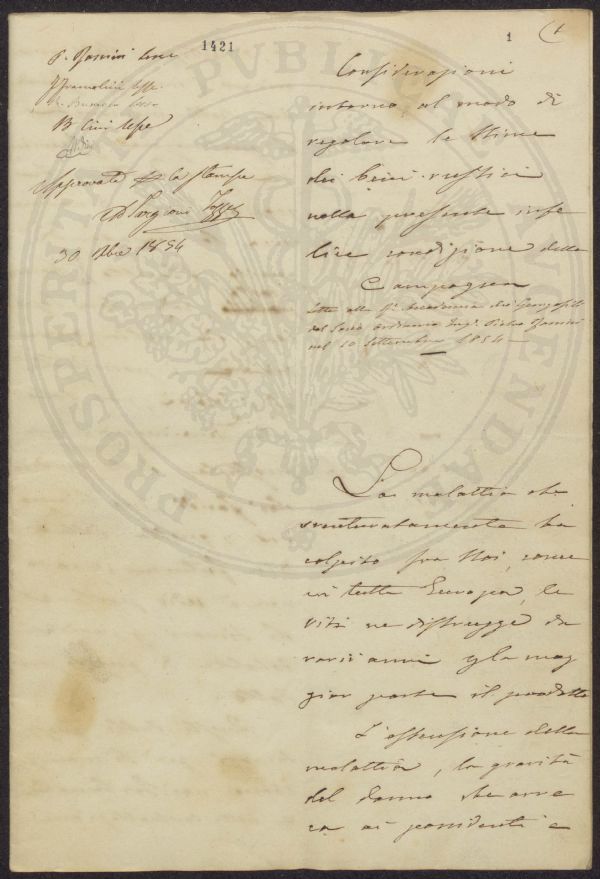 1421
1
Approvate per la stampa
30 1854
Considerazioni
intorno al modo di
regolare le stime
dei beni rustici
nella presente infe
lice condizione della
Campagna
Lette alla Accademia dei Georgofili
dal Socio ordinario Ing. Pietro
nel 10 Settembre 1854
La malattia che
sventuratamente ha
colpito fra Noi, come
in tutta Europa, le
viti ne distrugge da
varii anni la mag
gior parte il prodotto
L'estensione della
malattia, la gravità
del danno che arre
ca ai possidenti e
PROSPERITATI PVBLICAE AVGENDAE